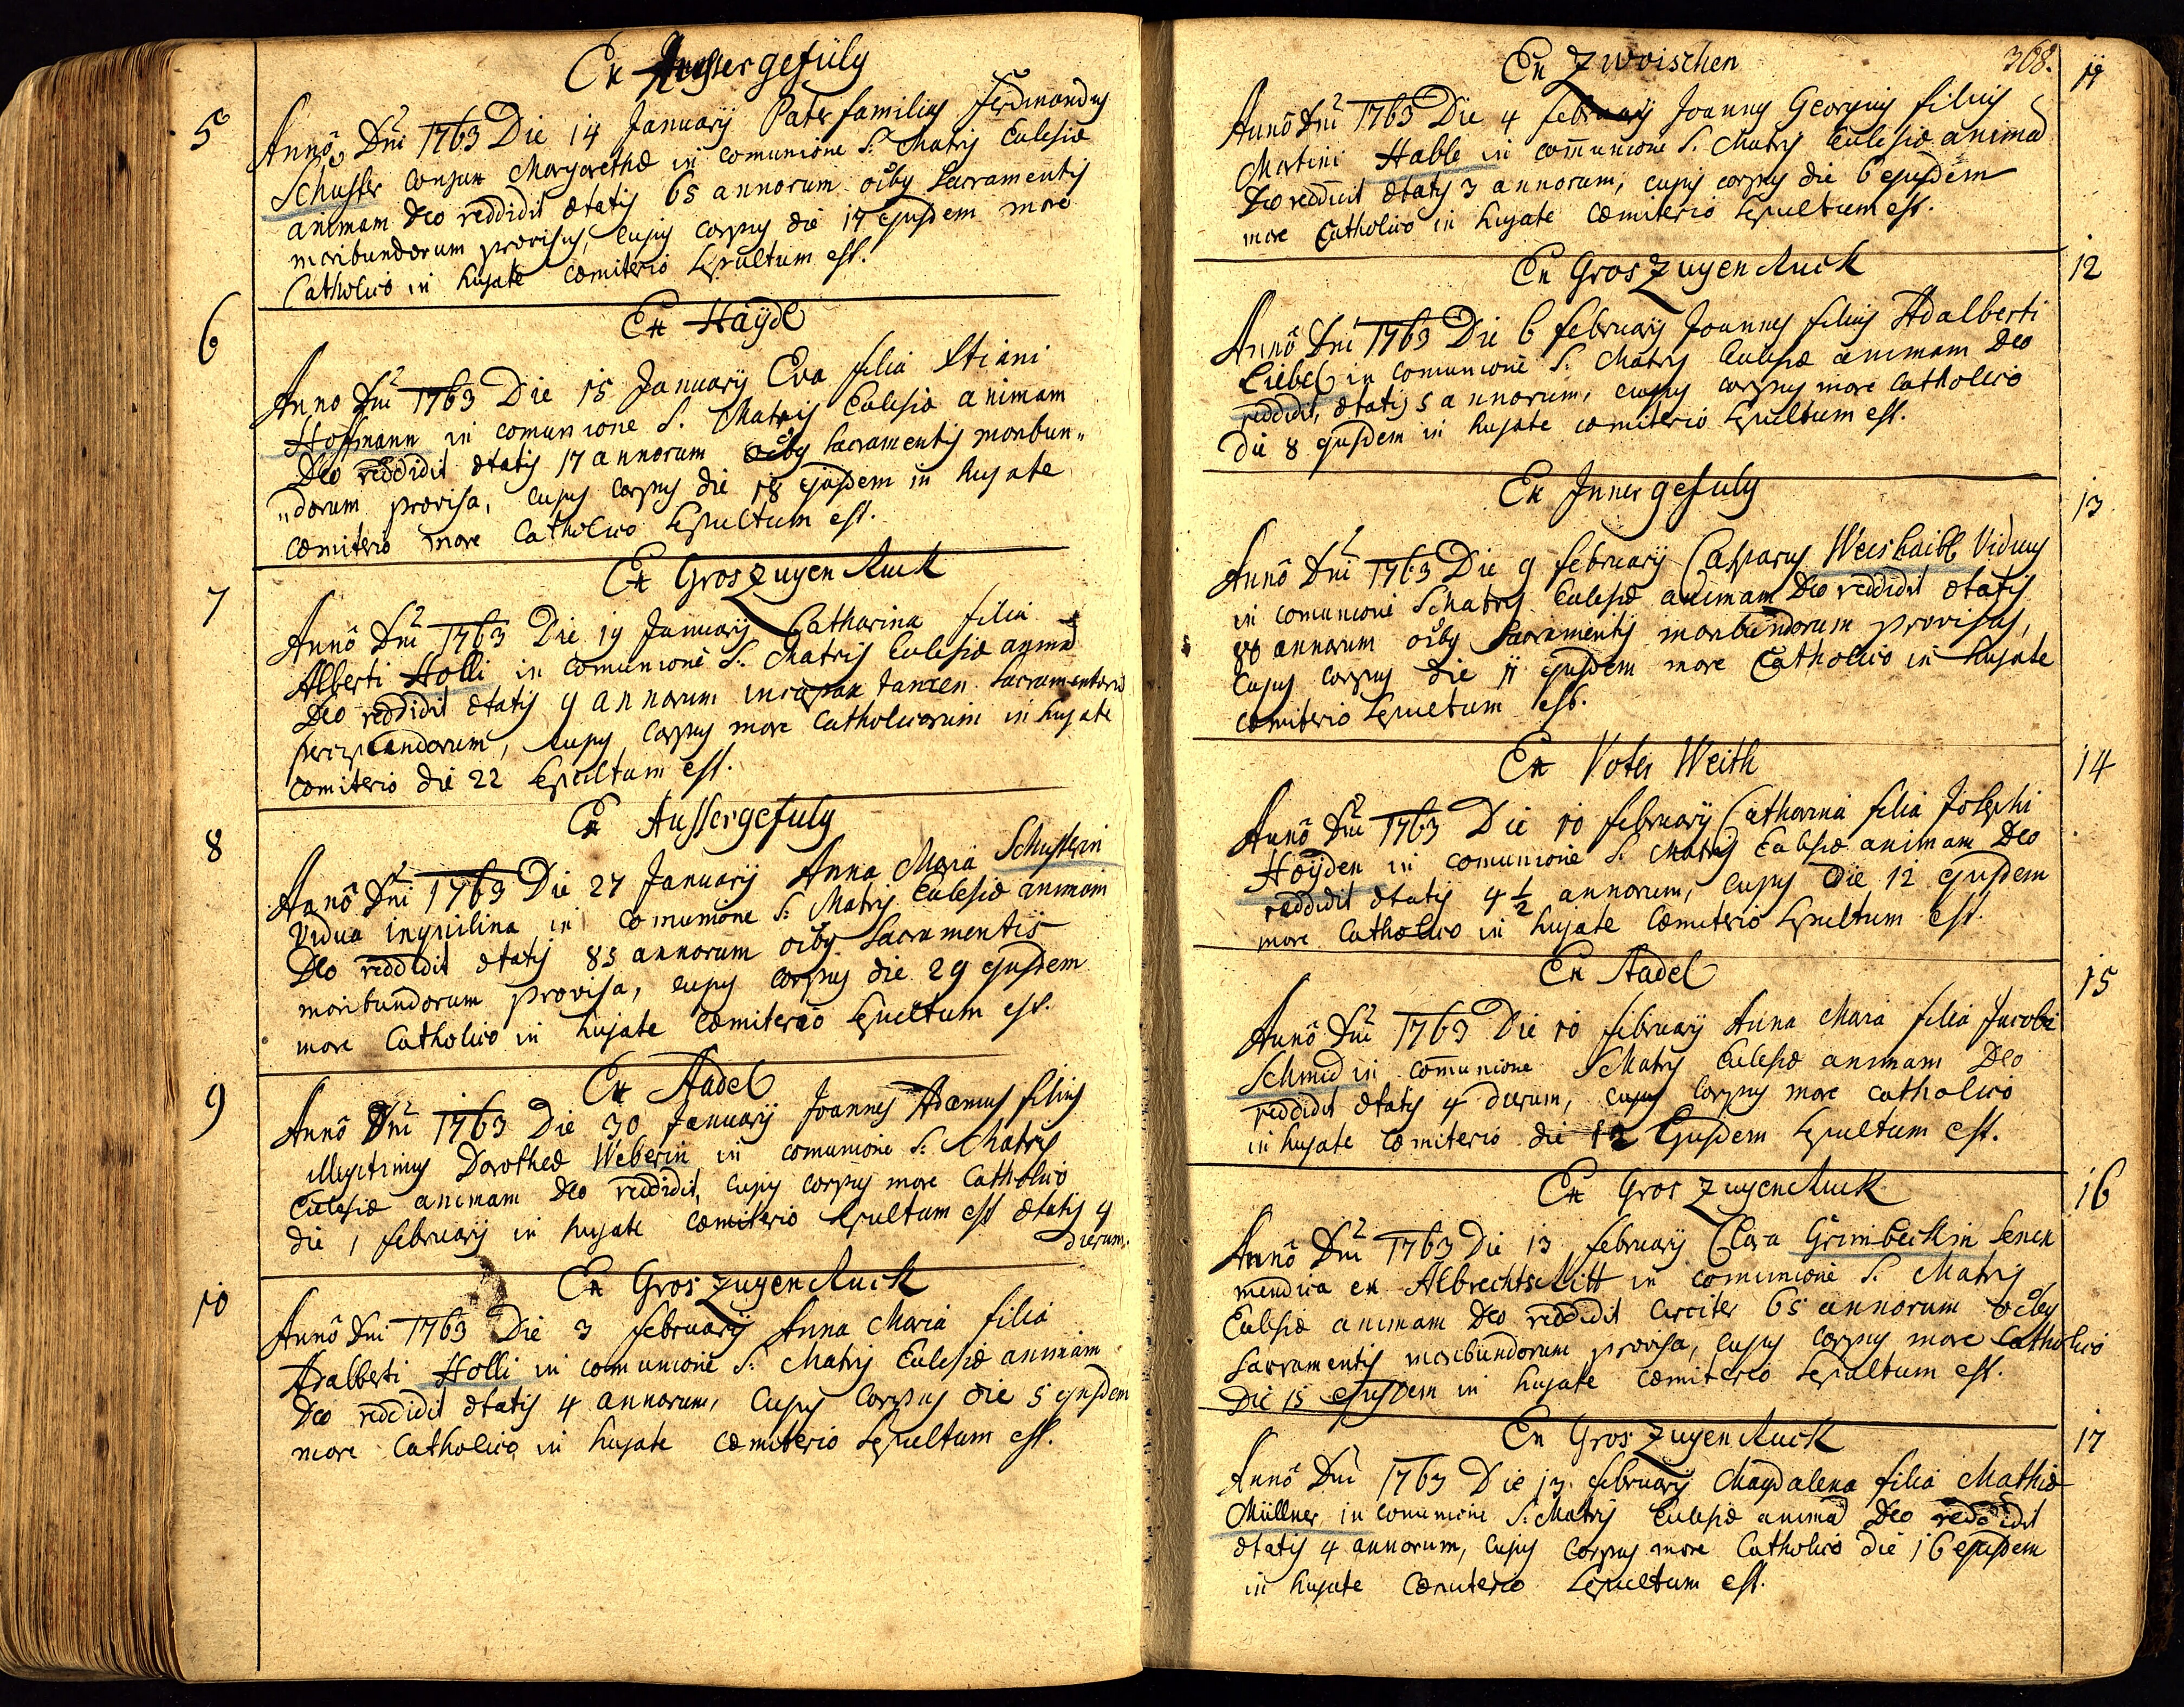 Ex Aussergefüly
5
Anno Dni 1763 Die 14 Januarij Pater familias Ferdinandus
Schuster conjux Margarethæ in comunione S. Matris Eccлesiæ
animam Deo reddidit ætatis 65 annorum oibus Sacramentis
moribundorum provisus, cujus corpus die 17 ejusdem more
Catholico in hujate cæmiterio Sepultum est.
6
Ex Haÿdl
Anno Dni 1763 Die 15 Januarij Eva filia Xtiani
Hoffmann in comunione S. Matris Ecclesiæ animam
Deo reddidit ætatis 17 annorum oibus Sacramentis moribun„
„dorum provisa, cujus corpus die 18 ejusdem in hujate
cæmiterio more Catholico Sepultum est.
7
Ex Gros Zugen Ruck
Anno Dni 1763 Die 19 Januarij Catharina filia
Alberti Holli in comunione S. Matris Ecclesiæ animā
Deo reddidit ætatis 9 annorum incapax tamen Sacramentorū
percipiendorum, cujus corpus more Catholicorum in hujate
cæmiterio die 22 Sepultum est.
8
Ex Aussergefuly
Anno Dni 1763 Die 27 Januarij Anna Maria Schusterin
Vidua inquilina in comunione S. Matris Ecclesiæ animam
Deo reddidit ætatis 85 annorum oibus Sacramentis
moribundorum provisa, cujus corpus die 29 ejusdem
more Catholico in hujate cæmiterio Sepultum est.
9
Ex Stadel
Anno Dni 1763 Die 30 Januarij Joannes Adamus filius
illegitimus Dorotheæ Weberin in comunione S. Matris
Ecclesiæ animam Deo reddidit, cujus corpus more Catholico
die 1 februarij in hujate cæmiterio Sepultum est ætatis 4
dierum.
10
Ex Gros Zugen Ruck
Anno Dni 1763 Die 3 februarij Anna Maria filia
Adalberti Holli in comunione S. Matris Ecclesiæ animam
Deo reddidit ætatis 4 annorum, cujus corpus die 5 ejusdem
more Catholico in hujate cæmiterio Sepultum est.
368.
Ex Zwoischen
11
Anno Dni 1763 Die 4 februarij Joannes Georgius filius
Martini Habb in com̄unione S. Matris Ecclesiæ animā
Deo reddidit ætatis 3 annorum, cujus corpus die 6 ejusdem
more Catholico in hujate cæmiterio Sepultum est.
Ex Gros Zugen Ruck
12
Anno Dni 1763 Die 6 februarij Joannes filius Adalberti
Liebel in comunione S. Matris Ecclesiæ animam Deo
reddidit, ætatis 5 annorum, cujus corpus more Catholico
die 8 ejusdem in hujate cæmiterio Sepultum est.
Ex Innergefuly
13
Anno Dni 1763 Die 9 februarij Casparus Weishaibl Viduus
in comunione S Matris Ecclesiæ animam Deo reddidit ætatis
annorum oibus Sacramentis moribundorum provisus,
cujus corpus die 11 ejusdem more Catholico in hujate
cæmiterio Sepultum est.
Ex Voter Weith
14
Anno Dni 1763 Die 10 februarij Catharina filia Josephi
Hoÿden in comunione S. Matris Ecclesiæ animam Deo
reddidit ætatis 4 ½ annorum, cujus die 12 ejusdem
more Catholico in hujate Cæmiterio Sepultum est.
Ex Stadel
15
Anno Dni 1763 Die 10 februarij Anna Maria filia Jacobi
Schmid in com̄unione S Matris Ecclesiæ animam Deo
reddidit ætatis 4 dierum, cujus corpus more catholico
in hujate cæmiterio die 12 Ejusdem Sepultum est.
Ex Gros Zugen Ruck
16
Anno Dni 1763 Die 13 februarij Clara Grimbeckin Senex
mendica ex Albrechtschlitt in comunione S. Matris
Ecclesiæ animam Deo reddidit circiter 65 annorum oibus
Sacramentis moribundorum provisa, cujus corpus more Catholico
Die 15 ejusdem in hujate cæmiterio Sepultum est.
Ex Gros Zugen Ruck
17
Anno Dni 1763 Die 13. februarij Magdalena filia Mathiæ
Müllner in comunione S. Matris Ecclesiæ animā Deo reddidit
ætatis 4 annorum, cujus corpus more Catholico die 16 ejusdem
in hujate Cæmiterio Sepultum est.